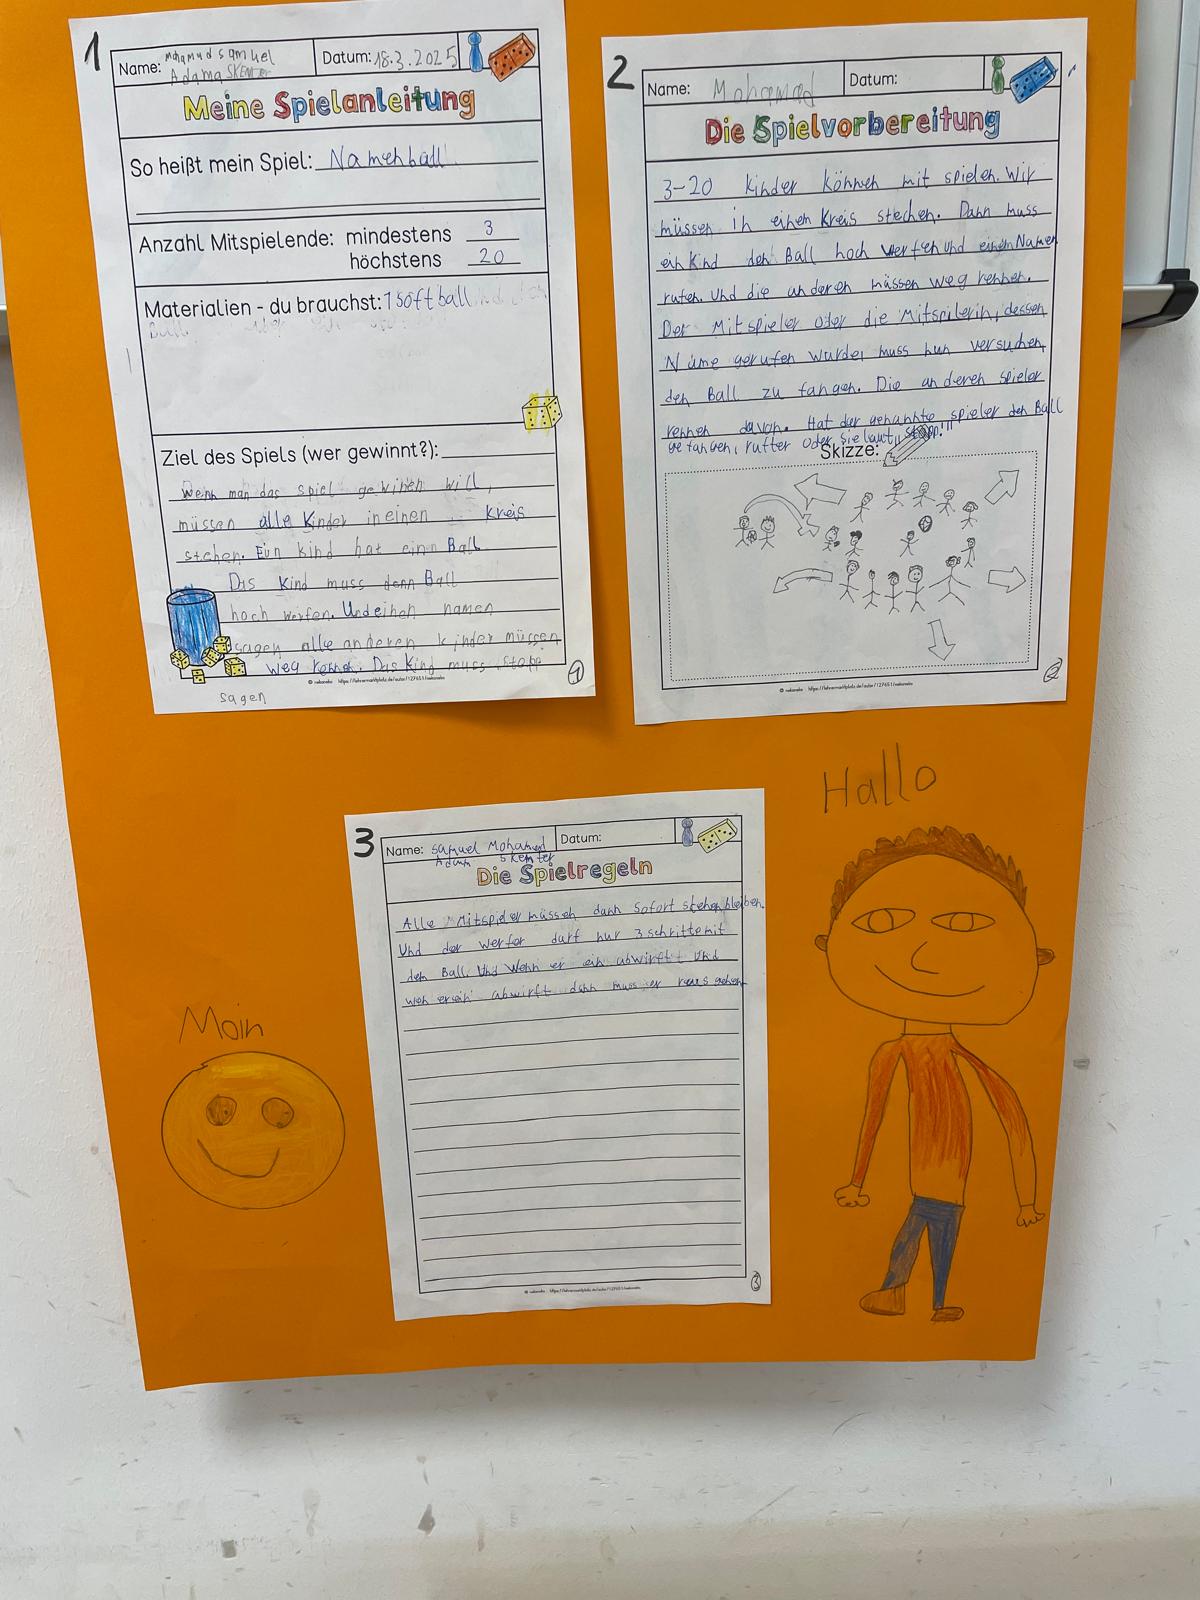 1
Name: Mohamud samuel
Adama SKEMTER
Datum: 18.3.2025
Meine Spielanleitung
So heißt mein Spiel: Namenball
Anzahl Mitspielende: mindestens 3
höchstens 20
Materialien - du brauchst: 1 softball
Ball
Ziel des Spiels (wer gewinnt?):
Wenn man das spiel gewinen will,
müssen alle Kinder in einen Kreis
stehen. Ein kind hat einn Ball
Das Kind muss denn Ball
hoch werfen. Und einen namen
sagen alle anderen kinder müssen
weg rennen. Das Kind muss stopp
sagen
© nekoneko https://lehrermarktplatz.de/autor/127651/nekoneko
1
2
Name: Mohamad
Datum:
Die Spielvorbereitung
3-20 kinder können mit spielen. Wir
müssen in einem Kreis stechen. Dann muss
ein Kind den Ball hoch werfen und einem Namen
rufen. Und die anderen müssen weg rennen.
Der Mitspieler oder die Mitspilerin, dessen
Name gerufen wurde, muss nun versuchen,
den Ball zu fangen. Die anderen spieler
rennen davon. Hat der genannte spieler den Ball
gefangen, rufter oder sie laut „stopp."
Skizze:
© nekoneko https://lehrermarktplatz.de/autor/127651/nekoneko
2
3
Name: Samuel Mohamed
Adam Skemter
Datum:
Die Spielregeln
Alle Mitspieler müssen dann sofort stehenbleiben.
Und der werfer darf nur 3 schritte mit
dem Ball. Und Wenn er ein abwirft und
wen er ein abwirft dann muss er raus gehen
© nekoneko https://lehrermarktplatz.de/autor/127651/nekoneko
3
Hallo
Moin